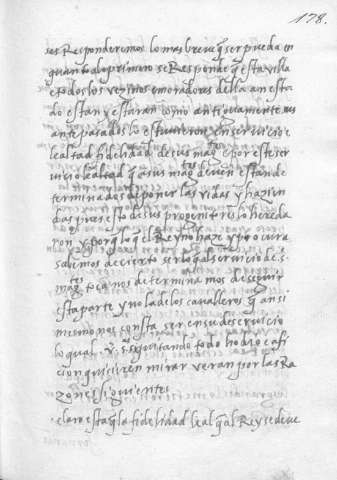 178.
ses Responderemos lo mas breve q̃ ser pueda en
quanto a lo primero se Responde q̃ esta villa
e todos los vezinos e moradores della an esta
do estan y estaran como antiguamente sus
antepasados lo estuvieron en servicio e
lealtad fidelidad de sus mag.tes e por este ser
vicio e lealtad q̃ a sus mag.tes deven estan de
terminados de poner las vidas y hazien
das pues esto de sus progenitores lo hereda
ron y porq̃ lo q̃ el Reyno haze y procura
sabemos de cierto ser lo q̃ al servicio de s.
mag.tes toca nos determinamos de seguir
esta parte y no la de los cavalleros q̃ ansi
mismo nos consta ser en su deservicio
lo qual quitando todo hodio e afi
cion quisieren mirar veran por las Ra
zones siguientes
claro esta q̃ la fidelidad e leal q̃ al Rey se deve